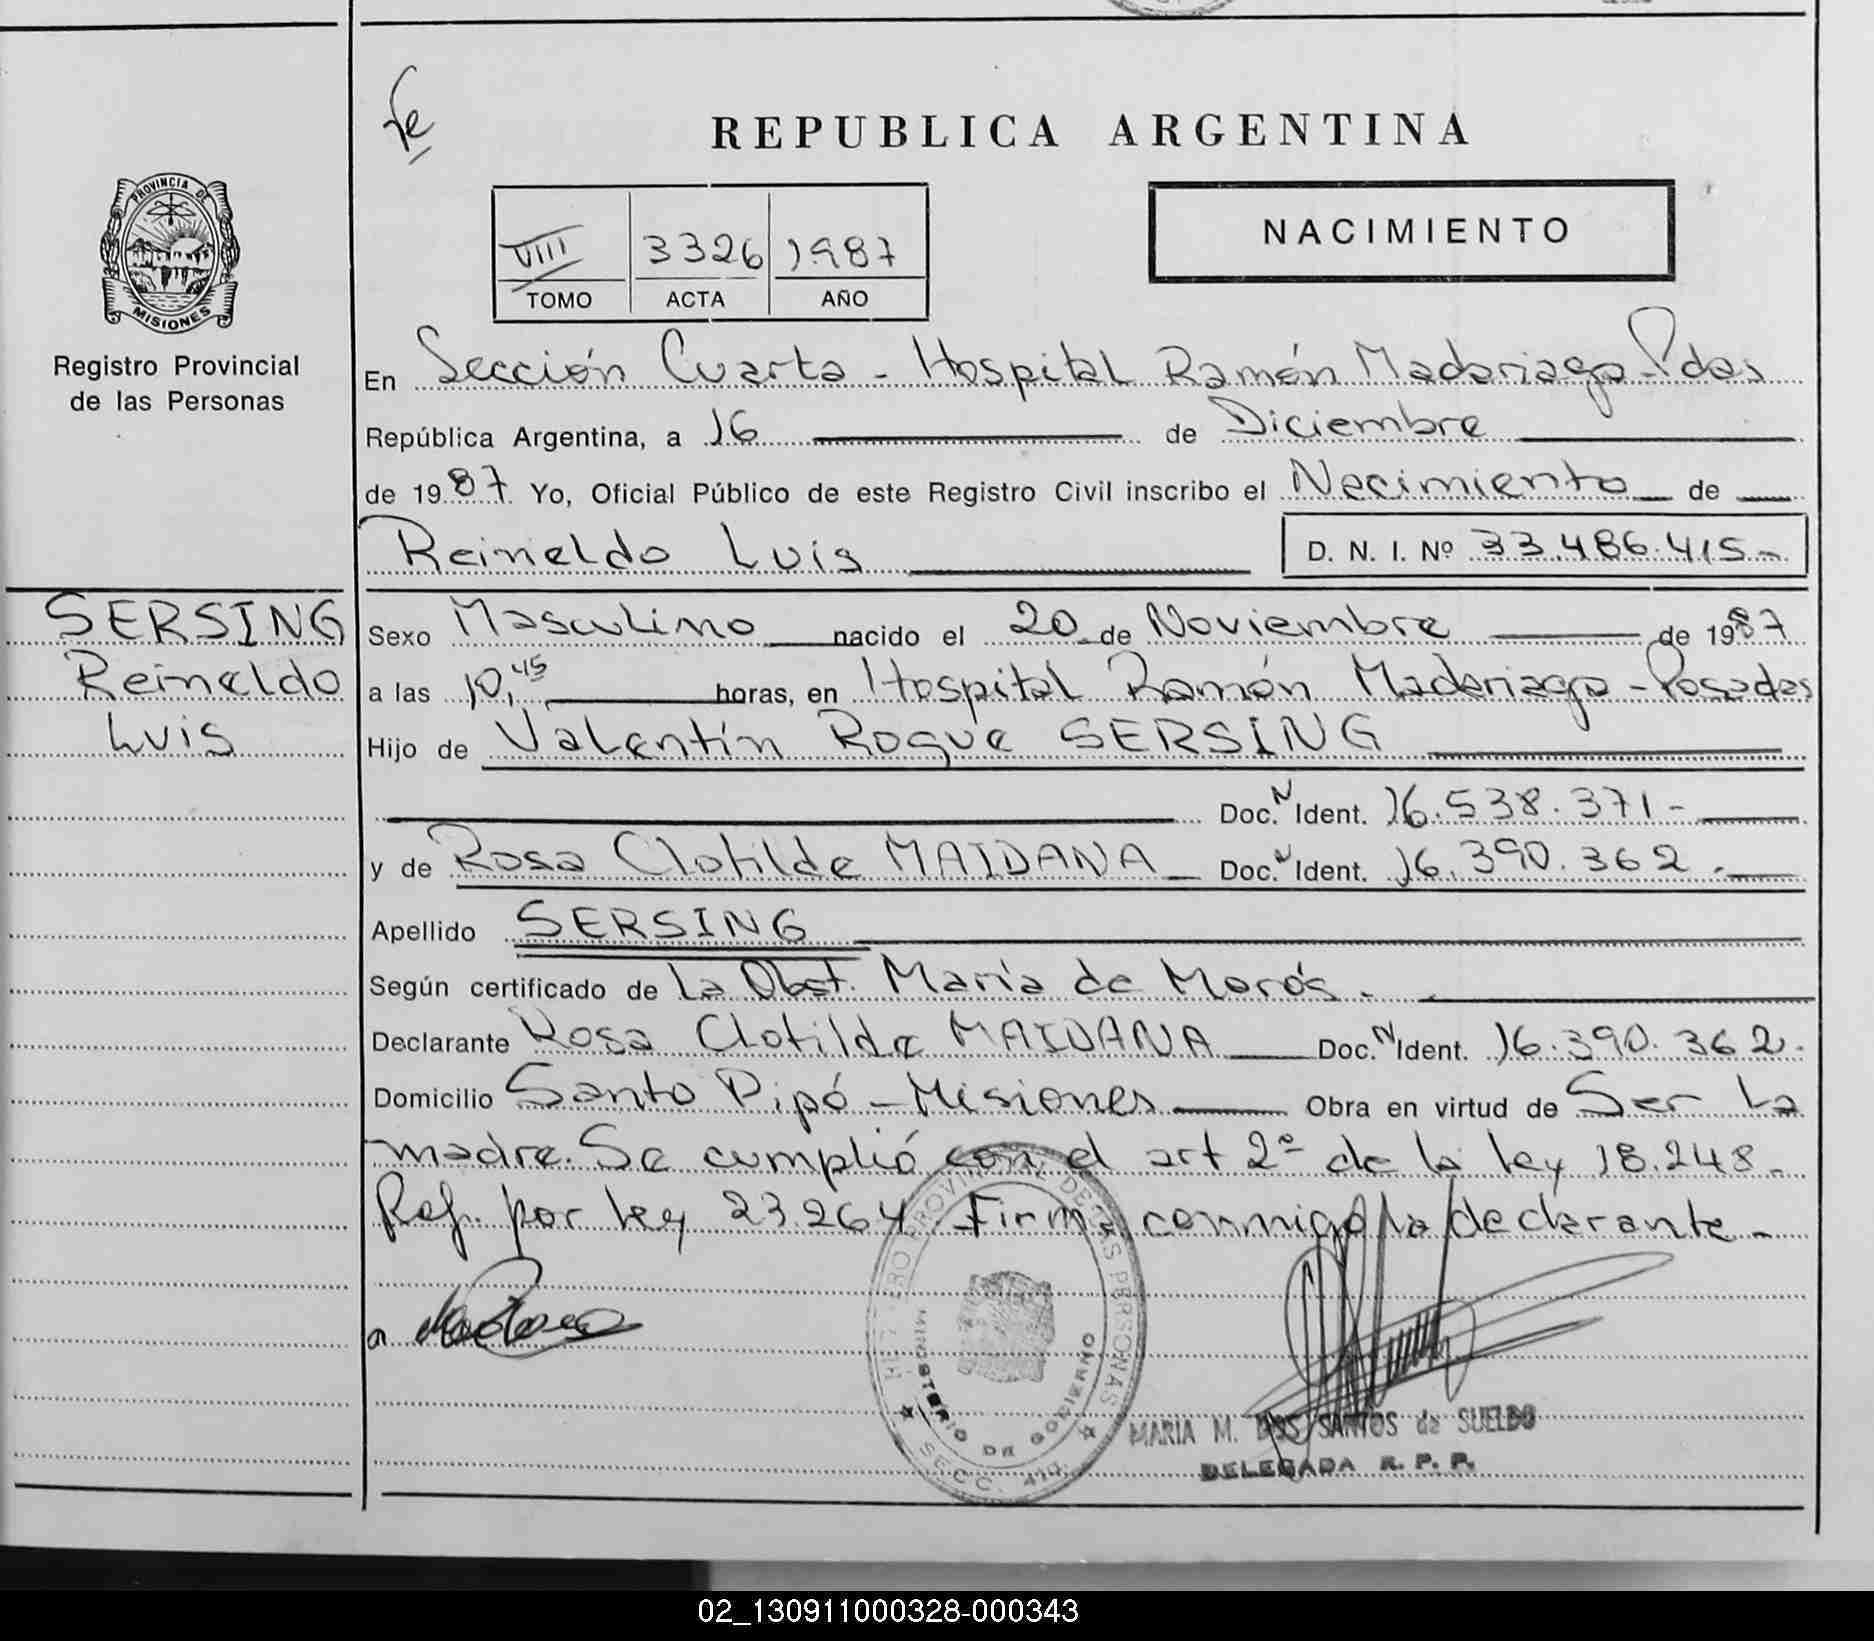 Fe
REPUBLICA ARGENTINA
PROVINCIA DE
MISIONES
Registro Provincial
de las Personas
VIII 3326 1987
TOMO ACTA AÑO
NACIMIENTO
En Sección Cuarta - Hospital Ramón Madariaga - Pdas
República Argentina, a 16 de Diciembre
de 1987 Yo, Oficial Público de este Registro Civil inscribo el Nacimiento de
Reinaldo Luis D. N. I. Nº 33.486.415-
SERSING
Reinaldo
Luis
Sexo Masculino nacido el 20 de Noviembre de 1987
a las 10,45 horas, en Hospital Ramón Madariaga - Posadas
Hijo de Valentín Roque SERSING
Doc. N Ident. 16.538.371-
y de Rosa Clotilde MAIDANA Doc. N Ident. 16.390.362.
Apellido SERSING
Según certificado de La Obst. María de Morós.
Declarante Rosa Clotilde MAIDANA Doc. N Ident. 16.390.362.
Domicilio Santo Pipó - Misiones Obra en virtud de Ser La
madre. Se cumplió con el art 2º de la ley 18.248.
Ref. por ley 23.264. Firma conmigo la declarante.-
REGISTRO PROVINCIAL DE LAS PERSONAS
MINISTERIO DE GOBIERNO
SECC. 4ta.
MARIA M. DOS SANTOS de SUELDO
DELEGADA R. P. P.
02_130911000328-000343